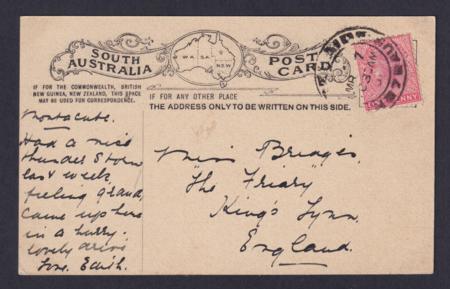 SOUTH AUSTRALIA
W.A. S.A. N.S.W.
POST CARD
IF FOR THE COMMONWEALTH, BRITISH
NEW GUINEA, NEW ZEALAND, THIS SPACE
MAY BE USED FOR CORRESPONDENCE.
IF FOR ANY OTHER PLACE
THE ADDRESS ONLY TO BE WRITTEN ON THIS SIDE.
ADELAIDE
PENNY
Montacute.
Had a nice
thunder Storm
last week,
feeling grand,
came up here
in a hurry.
lovely drive
Love. Edith.
Miss Bridges,
The Friary
King's Lynn.
England.